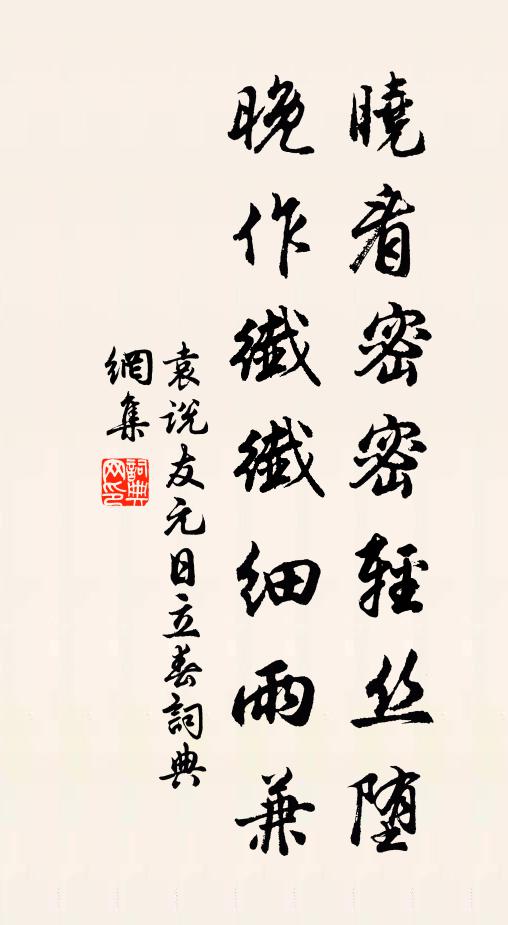 曉看密密輕丝墮
晚作纖纖細雨兼
袁说友元日立春詞典
網集
詞典網印